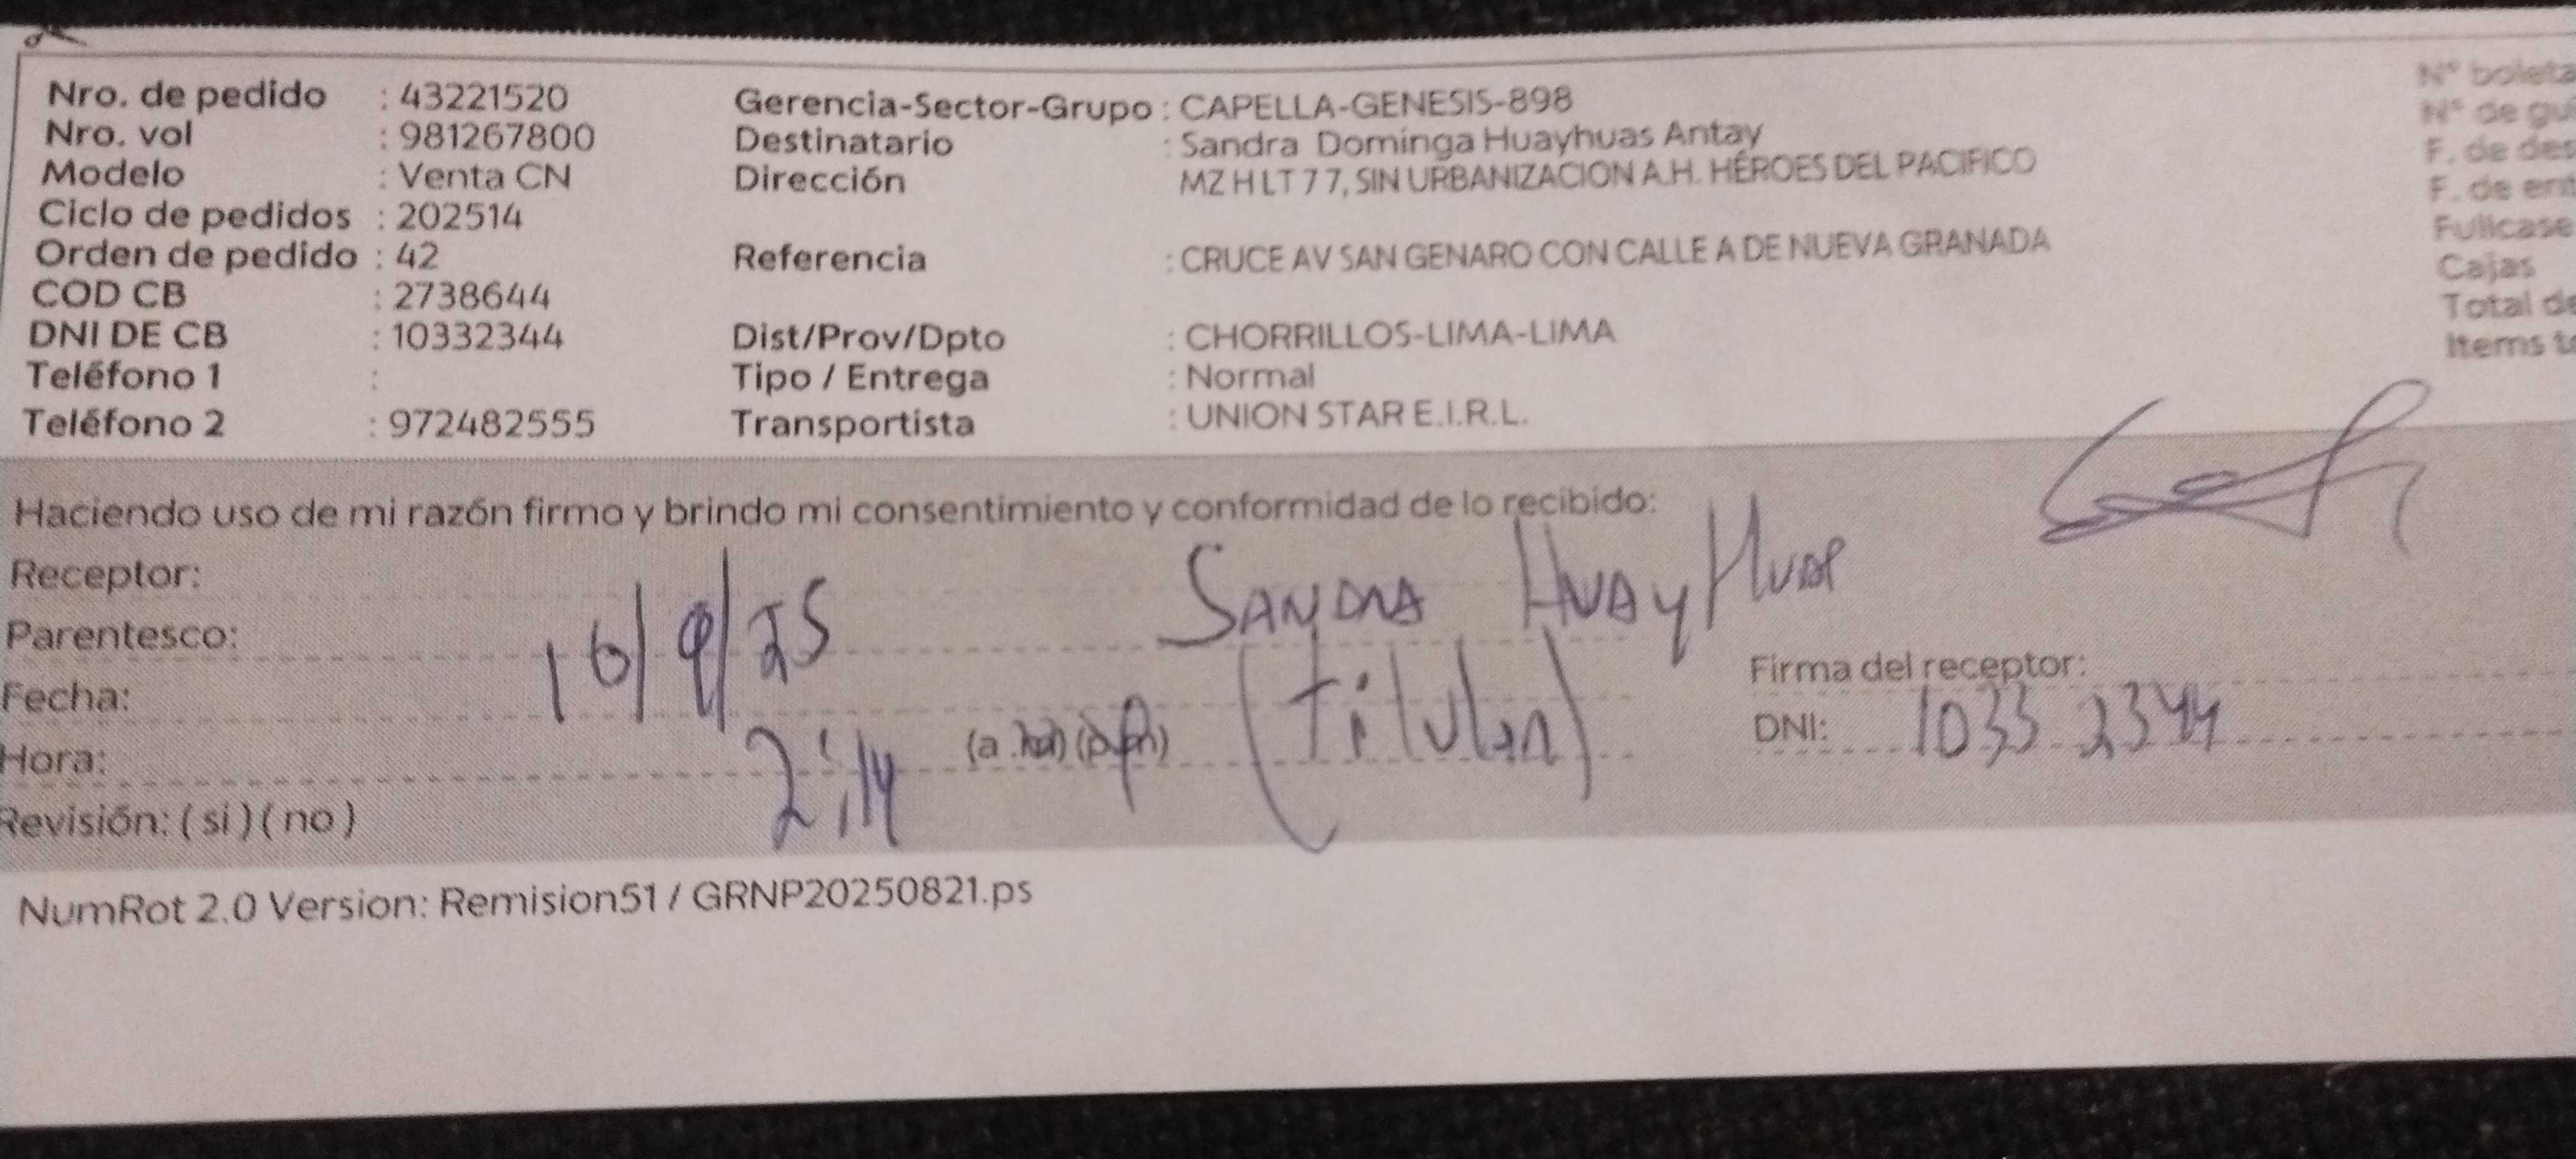 Nro. de pedido : 43221520 Gerencia-Sector-Grupo : CAPELLA-GENESIS-898 N° boleta
Nro. vol : 981267800 Destinatario : Sandra Dominga Huayhuas Antay N° de gu
Modelo : Venta CN Dirección MZ H LT 7 7, SIN URBANIZACION A.H. HÉROES DEL PACIFICO F. de des
Ciclo de pedidos : 202514 F. de ent
Orden de pedido : 42 Referencia : CRUCE AV SAN GENARO CON CALLE A DE NUEVA GRANADA Fullcase
COD CB : 2738644 Cajas
DNI DE CB : 10332344 Dist/Prov/Dpto : CHORRILLOS-LIMA-LIMA Total de
Teléfono 1 : Tipo / Entrega : Normal Items to
Teléfono 2 : 972482555 Transportista : UNION STAR E.I.R.L.
Haciendo uso de mi razón firmo y brindo mi consentimiento y conformidad de lo recibido:
Receptor: SANDRA HUAYHUAS
Parentesco: (titular)
Fecha: 16/9/25 Firma del receptor:
Hora: 2:14 DNI: 1033 2344
Revisión: ( si ) ( no )
NumRot 2.0 Version: Remision51 / GRNP20250821.ps